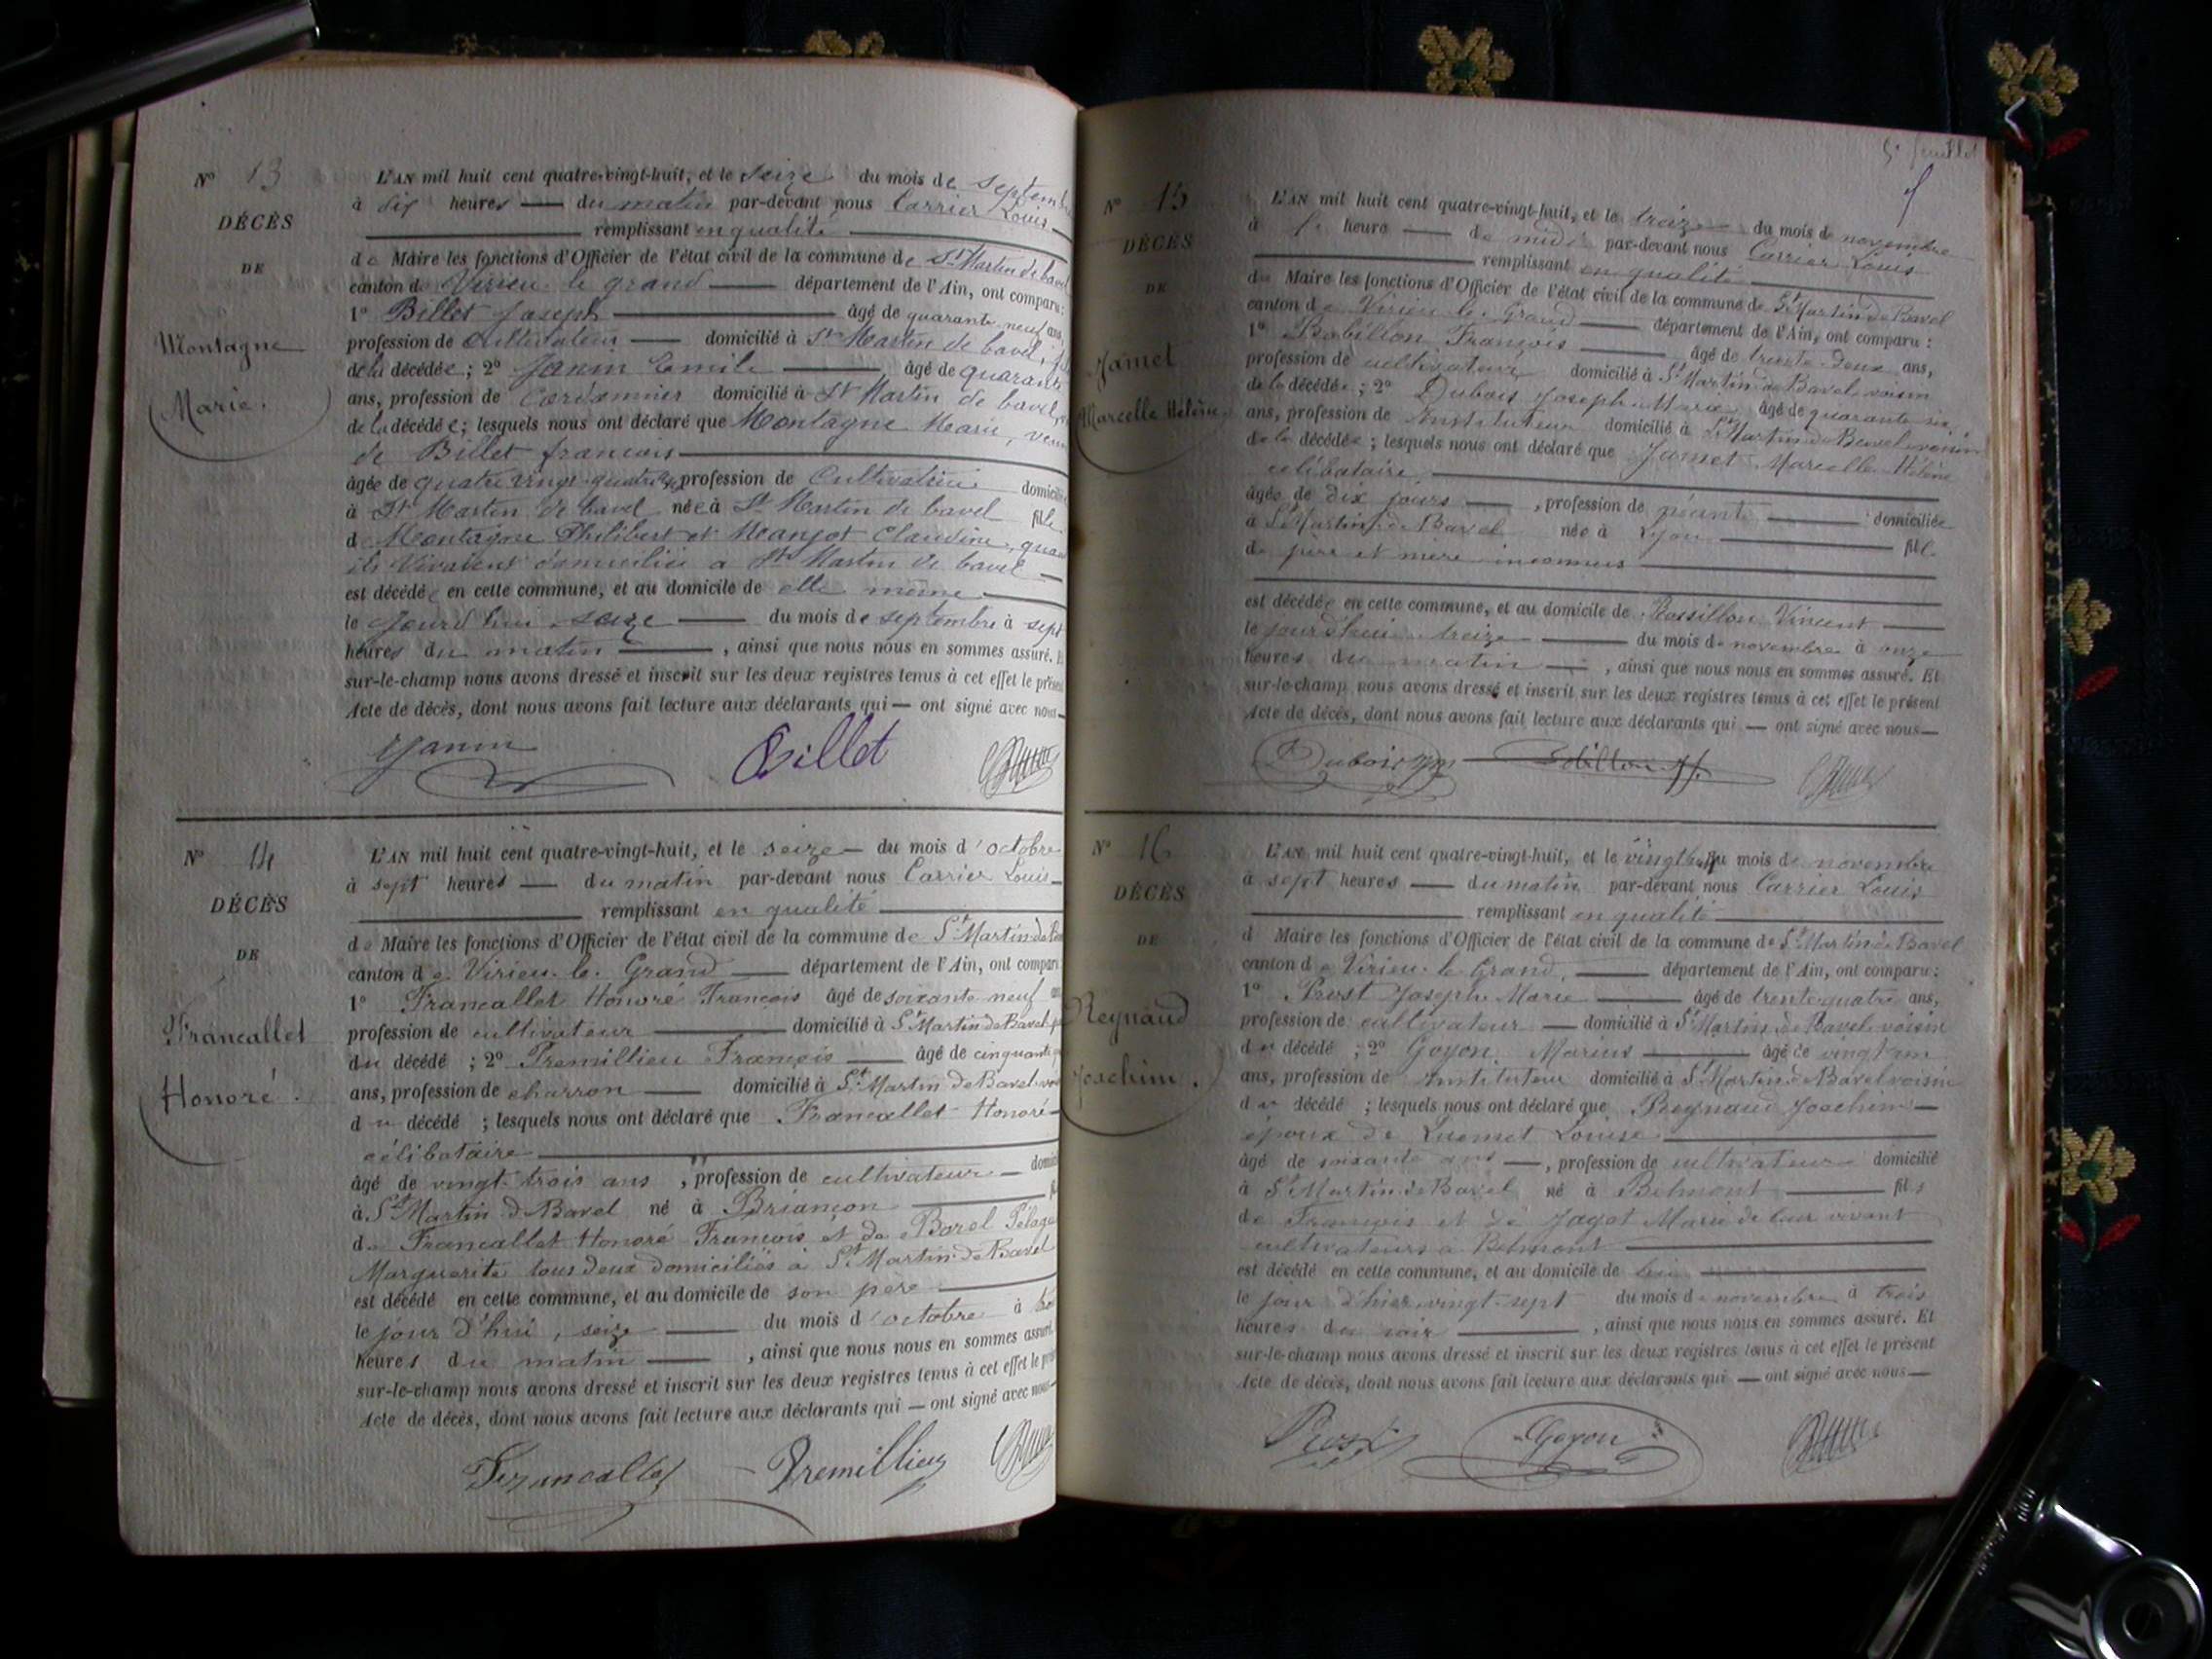 N° 13
DÉCÈS
DE
Montagne
Marie.
L'AN mil huit cent quatre-vingt-huit, et le seize du mois de septembre
à dix heures — du matin par-devant nous Carrier Louis
remplissant en qualité
de Maire les fonctions d'Officier de l'état civil de la commune de St Martin de bavel
canton de Virieu le grand — département de l'Ain, ont comparu:
1° Billet Joseph — âgé de quarante neuf ans,
profession de Cultivateur — domicilié à St Martin de bavel,
de la décédée; 2° Janin Emile — âgé de quarante
ans, profession de Cordonnier domicilié à St Martin de bavel
de la décédée; lesquels nous ont déclaré que Montagne Marie,
de Billet francois
âgée de quatre vingt quatre profession de Cultivatrice
à St Martin de bavel née à St Martin de bavel fille
de Montagne Philibert et Manjot Claudine, quand
ils Vivaient domiciliés a St Martin de bavel
est décédée en cette commune, et au domicile de elle même
le Jourd'hui seize — du mois de septembre à sept
heures du matin — , ainsi que nous nous en sommes assuré. Et
sur-le-champ nous avons dressé et inscrit sur les deux registres tenus à cet effet le présent
Acte de décès, dont nous avons fait lecture aux déclarants qui — ont signé avec nous—
Janin Billet
N° 14
DÉCÈS
DE
Francallet
Honoré.
L'AN mil huit cent quatre-vingt-huit, et le seize — du mois d'octobre
à sept heures — du matin par-devant nous Carrier Louis
remplissant en qualité
de Maire les fonctions d'Officier de l'état civil de la commune de St Martin de
canton de Virieu-le-Grand — département de l'Ain, ont comparu
1° Francallet Honoré François âgé de soixante neuf
profession de cultivateur — domicilié à St Martin de Bavel
du décédé ; 2° Premillieu François — âgé de cinquante
ans, profession de charron — domicilié à St Martin de Bavel
du décédé ; lesquels nous ont déclaré que Francallet Honoré
célibataire
âgé de vingt-trois ans , profession de cultivateur —
à St Martin d Bavel né à Briançon
de Francallet Honoré François et de Borel Pélage
Marguerite tous deux domiciliés à St Martin de Bavel
est décédé en cette commune, et au domicile de son père
le jour d'hui, seize — du mois d'octobre à
heures du matin — , ainsi que nous nous en sommes assuré.
sur-le-champ nous avons dressé et inscrit sur les deux registres tenus à cet effet le
Acte de décès, dont nous avons fait lecture aux déclarants qui — ont signé avec nous—
Francallet Premillieu
5e feuillet
N° 15
DÉCÈS
DE
Jamet
Marcelle Hélène
L'AN mil huit cent quatre-vingt-huit, et le treize du mois de novembre
à heure — de midi par-devant nous Carrier Louis
remplissant en qualité
de Maire les fonctions d'Officier de l'état civil de la commune de St Martin de Bavel
canton de Virieu-le-Grand — département de l'Ain, ont comparu :
1° François — âgé de trente-deux ans,
profession de cultivateur domicilié à St Martin de Bavel voisin
de la décédée ; 2° Dubois Joseph Marie âgé de quarante six
ans, profession de Instituteur domicilié à St Martin de Bavel voisin
de la décédée ; lesquels nous ont déclaré que Jamet Marcelle Hélène
célibataire
âgée de dix jours — , profession de néante — domiciliée
à St Martin de Bavel née à Lyon — fille
de père et mère inconnus
est décédée en cette commune, et au domicile de Rossillon Vincent
le jourd'hui treize — du mois de novembre à onze
heures du matin — , ainsi que nous nous en sommes assuré. Et
sur-le-champ nous avons dressé et inscrit sur les deux registres tenus à cet effet le présent
Acte de décès, dont nous avons fait lecture aux déclarants qui — ont signé avec nous—
Dubois
N° 16
DÉCÈS
DE
Reynaud
Joachim.
L'AN mil huit cent quatre-vingt-huit, et le vingt huit du mois de novembre
à sept heures — du matin par-devant nous Carrier Louis
remplissant en qualité
d Maire les fonctions d'Officier de l'état civil de la commune de St Martin de Bavel
canton de Virieu-le-Grand, — département de l'Ain, ont comparu:
1° Prost Joseph Marie — âgé de trente-quatre ans,
profession de cultivateur — domicilié à St Martin de Bavel voisin
du décédé ; 2° Goyon Marius — âgé de vingt un
ans, profession de Instituteur domicilié à St Martin de Bavel voisin
du décédé ; lesquels nous ont déclaré que Reynaud Joachim —
époux de Louise
âgé de soixante ans —, profession de cultivateur domicilié
à St Martin de Bavel né à Belmont — fils
de François et de Jagot Marie de leur vivant
cultivateurs à Belmont
est décédé en cette commune, et au domicile de lui
le jour d'hier vingt-sept du mois de novembre à trois
heures du soir — , ainsi que nous nous en sommes assuré. Et
sur-le-champ nous avons dressé et inscrit sur les deux registres tenus à cet effet le présent
Acte de décès, dont nous avons fait lecture aux déclarants qui — ont signé avec nous—
Prost Goyon